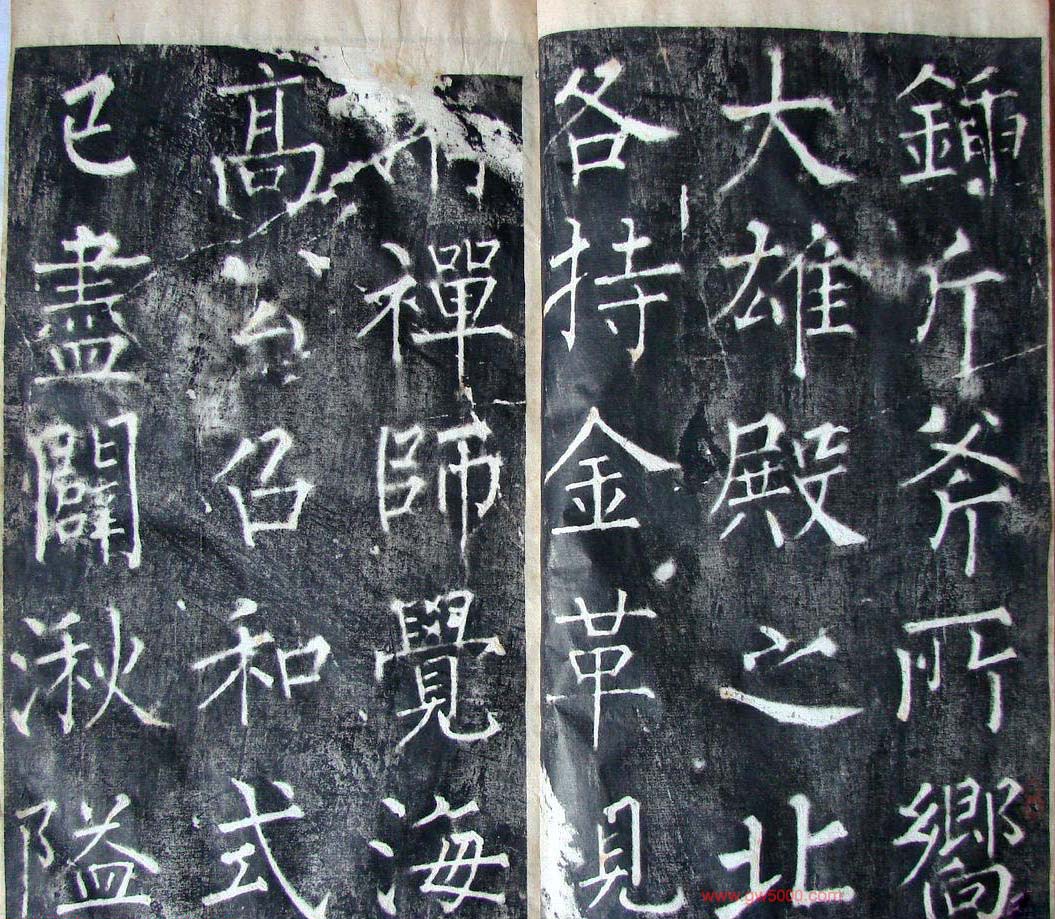 鍤斤斧所嚮
大雄殿之北
各持金革見
禪師覺海
高台召和式
已盡闢湫隘
www.gw5000.com